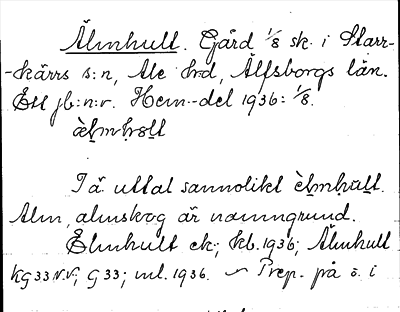 Älmhult. Gård 1/8 sk. i Starr-
-kärrs s:n, Ale hrd, Älfsborgs län.
Ett jb:n:r. Hem.-del 1936: 1/8.
I ä. uttal sannolikt
Alm, almskog är namngrund.
Elmhult ek; kb. 1936; Älmhult
KG33 N.V.; G33; ml. 1936. Prep. på ä. i